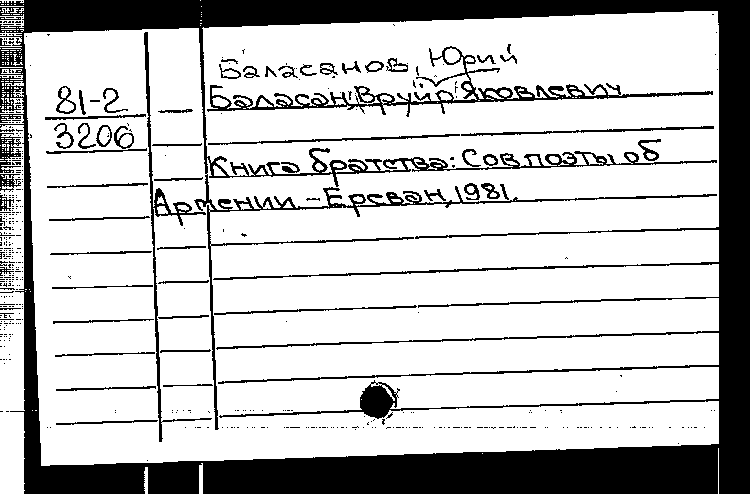 Баласанов, Юрий
81-2 Баласан, Вруйр Яковлевич
3206
Книга братства: Сов поэты об
Армении. - Ереван, 1981.